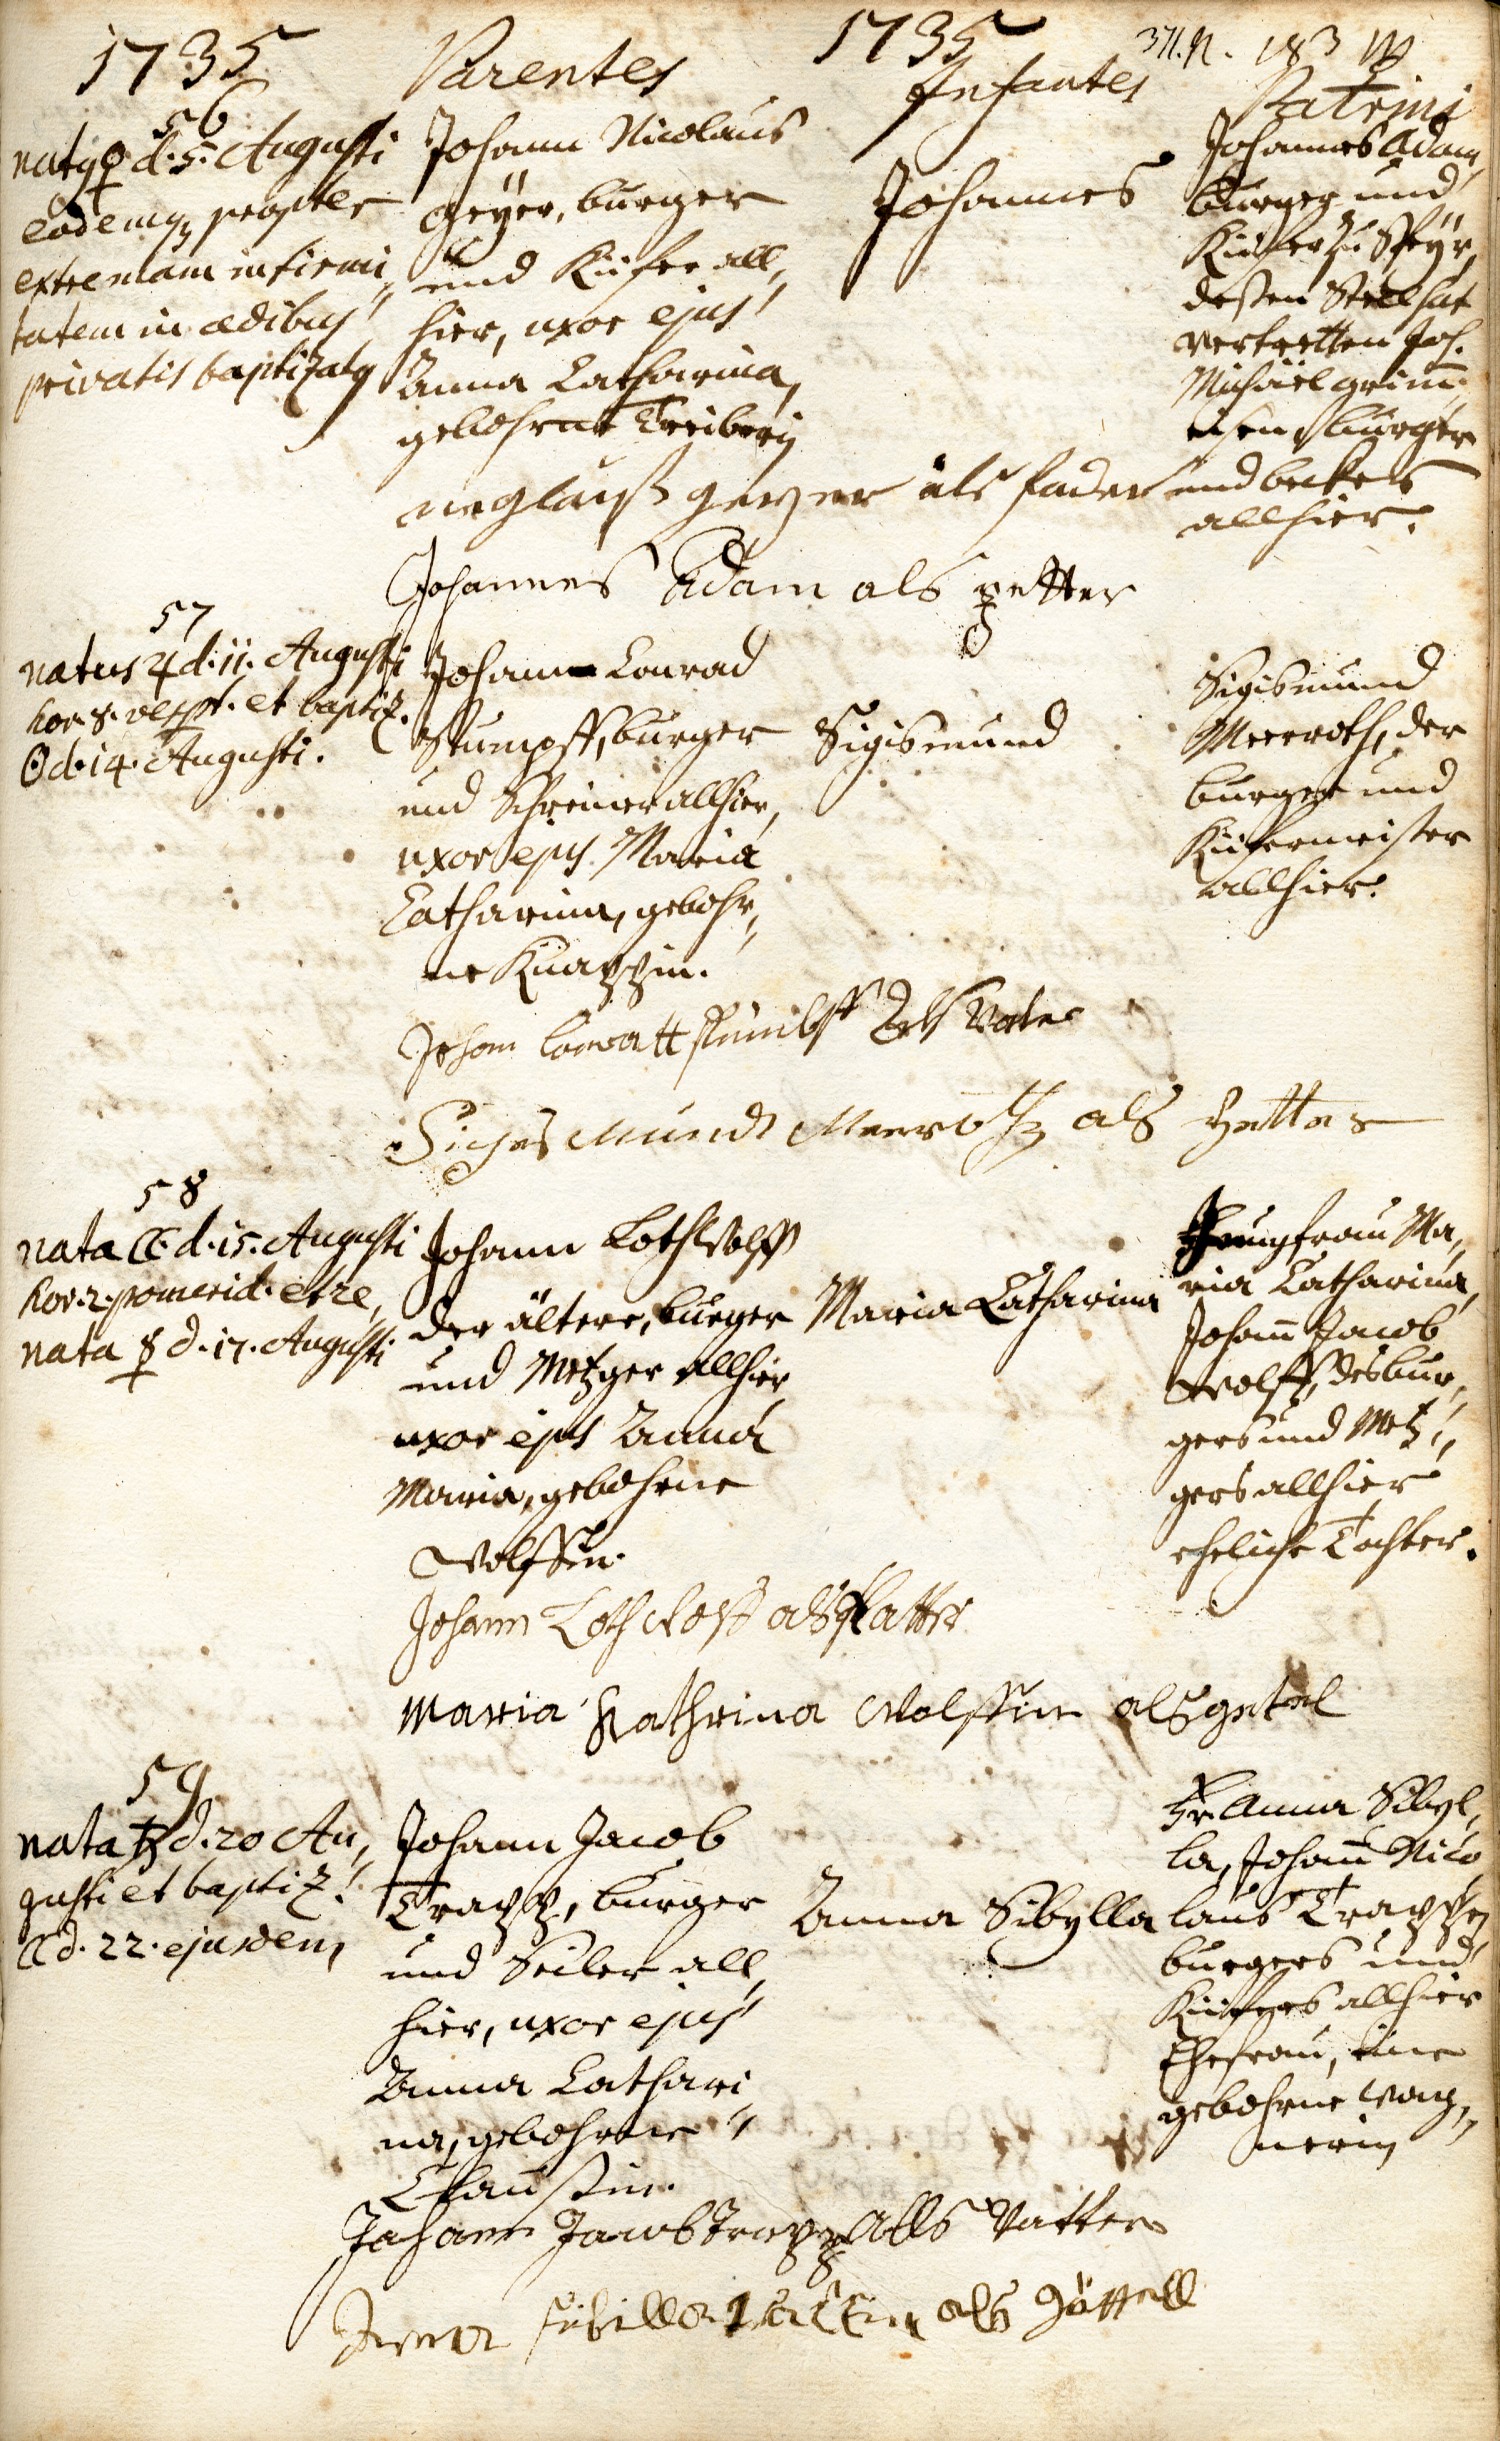 1735
Parentes
1735
Infantes
371. n. 183
Patrini
56
natq ♀ d. 5. Augusti
eodemq, propter
extremam infirmi,,
tatem in ædibus
privatis baptizatq
Johann Nicolaus
Geÿer, burger
und Kiefer all,,
hier, uxor ejus
Anna Catharina,
gebohrne Treiberin
Johannes
Johannes Adam,
burger und
Kiefer zu Speÿr,
deßen Stell hat
vertretten Joh.
Michäel Grim̄,,
eisen, burger
und becker
allhier.
neglauß geyer als fader
Johannes Adam als petter
57
natus ♃ d. 11. Augusti
hor. 8. vesp. et baptiz.
☉ d. 14. Augusti.
Johann Conrad
Stumpff, burger
und Schreiner allhier,
uxor ejus Maria
Catharina, gebohr,,
ne Knappin.
Sigismund
Sigismund
Meerroth, der
burger und
Kiefermeister
allhier.
Johan Conratt stumbff Als Vater
Siches Mundt Meeroth als Petter
58
nata ☾ d. 15. Augusti
hor. 2. pomerid. et re,,
nata ☿ d. 17. Augusti
Johann Loth Wolff
der ältere, burger
und Metzger allhier
uxor ejus Anna
Maria, gebohrne
Wolffin.
Maria Catharina
Jungfrau Ma,,
ria Catharina,
Johan̄ Jacob
Wolff, des bur,,
gers und Metz,,
gers allhier
eheliche Tochter.
Johann Loth Wolff als Vatter
Maria Kathrina Wolffin als getel
59
nata ♄ d. 20 Au,,
gusti et baptiz.
☾ d. 22. ejusdem
Johann Jacob
Trapp, burger
und Seiler all,,
hier, uxor ejus
Anna Cathari,,
na, gebohrne
Claußin.
Anna Sibylla
Fr. Anna Sibyl,,
la, Johan̄ Nico,,
laus Trappen
burgers und
Kiefers allhier
Ehefrau, eine
gebohrne Wag,,
nerin
Johann Jacob Trapp Alls Vatter
sibilla als göttell